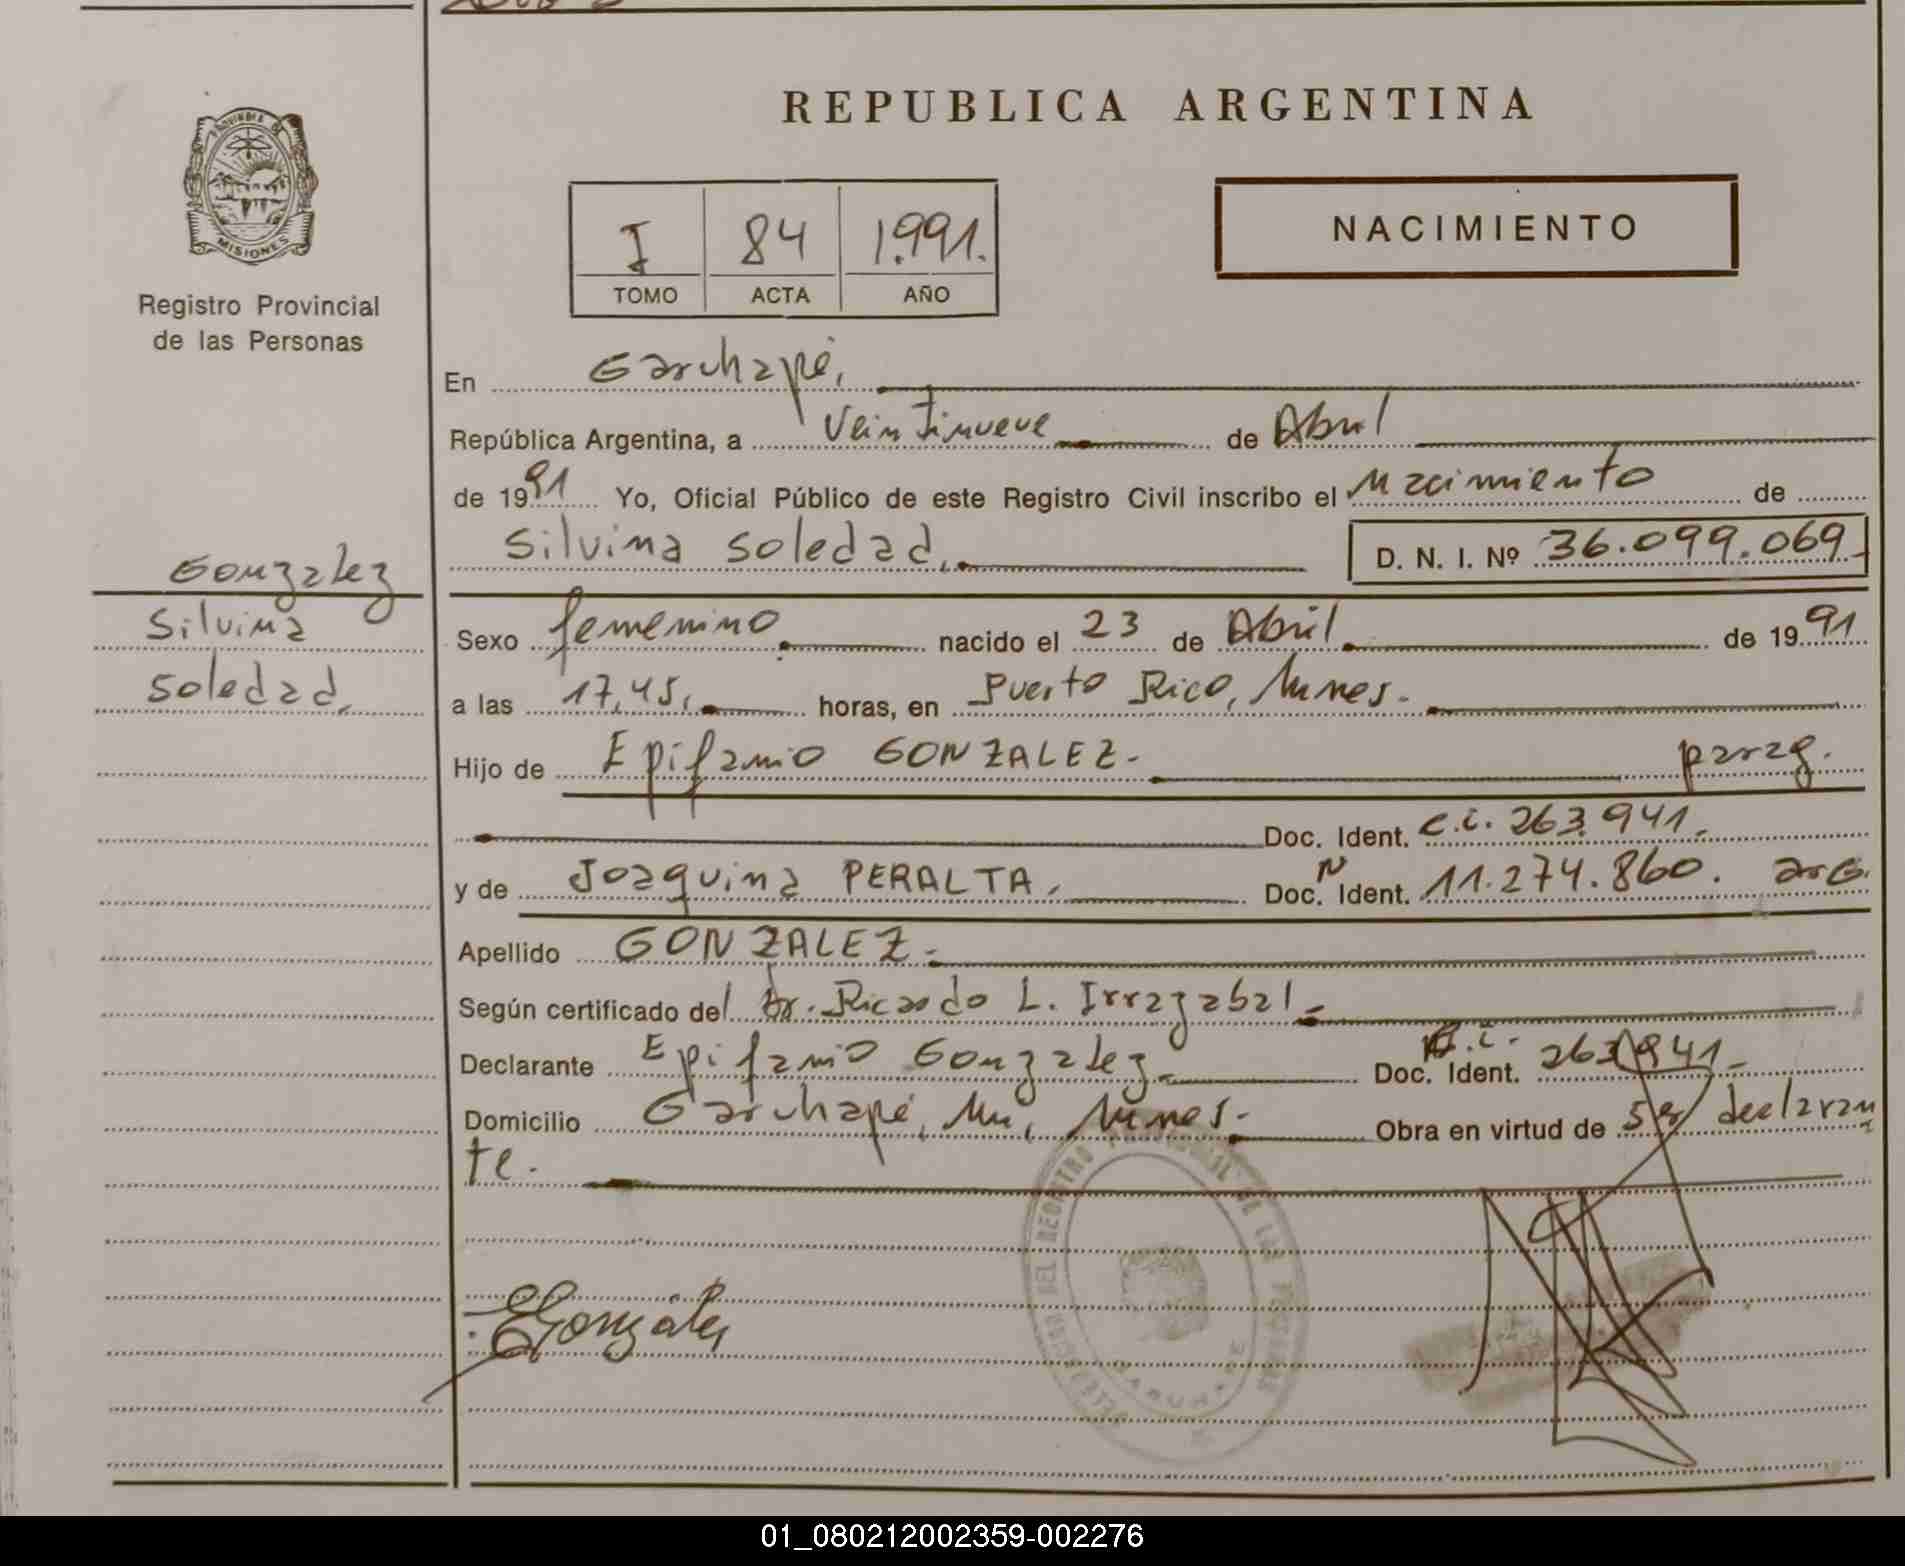 PROVINCIA DE
MISIONES
Registro Provincial
de las Personas
Gonzalez
Silvina
Soledad.
REPUBLICA ARGENTINA
I 84 1.991.
TOMO ACTA AÑO
NACIMIENTO
En Garuhapé,
República Argentina, a Veintinueve de Abril
de 1991 Yo, Oficial Público de este Registro Civil inscribo el Nacimiento de
Silvina Soledad, D. N. I. Nº 36.099.069
Sexo femenino nacido el 23 de Abril de 1991
a las 17,45, horas, en Puerto Rico, Mnes.
Hijo de Epifanio GONZALEZ. parag.
Doc. Ident. C.I. 263.941.
y de Joaquina PERALTA, Doc. N Ident. 11.274.860. arG.
Apellido GONZALEZ.
Según certificado del Dr. Ricardo L. Irrazabal.
Declarante Epifanio Gonzalez Doc. Ident. C.I. 263.941.
Domicilio Garuhapé, Mnes. Obra en virtud de ser declaran
te.
EGonzález
DEL REGISTRO PROVINCIAL DE LAS PERSONAS
GARUHAPE
01_080212002359-002276